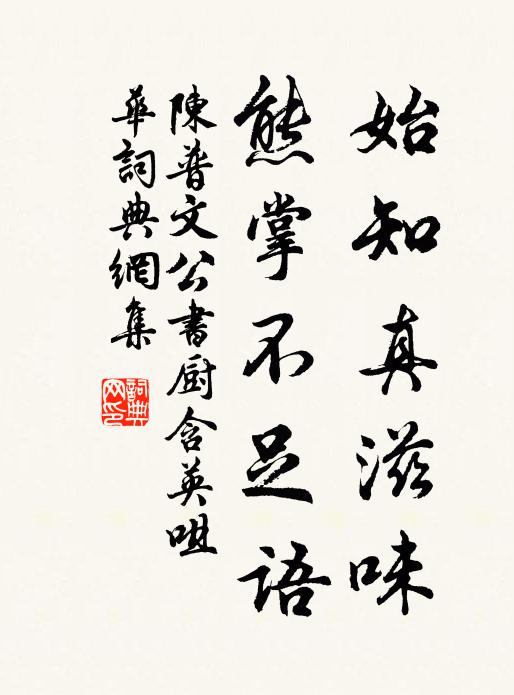 始知真滋味
熊掌不足語
陳普文公書厨含英咀
華詞典網集
詞典
网印